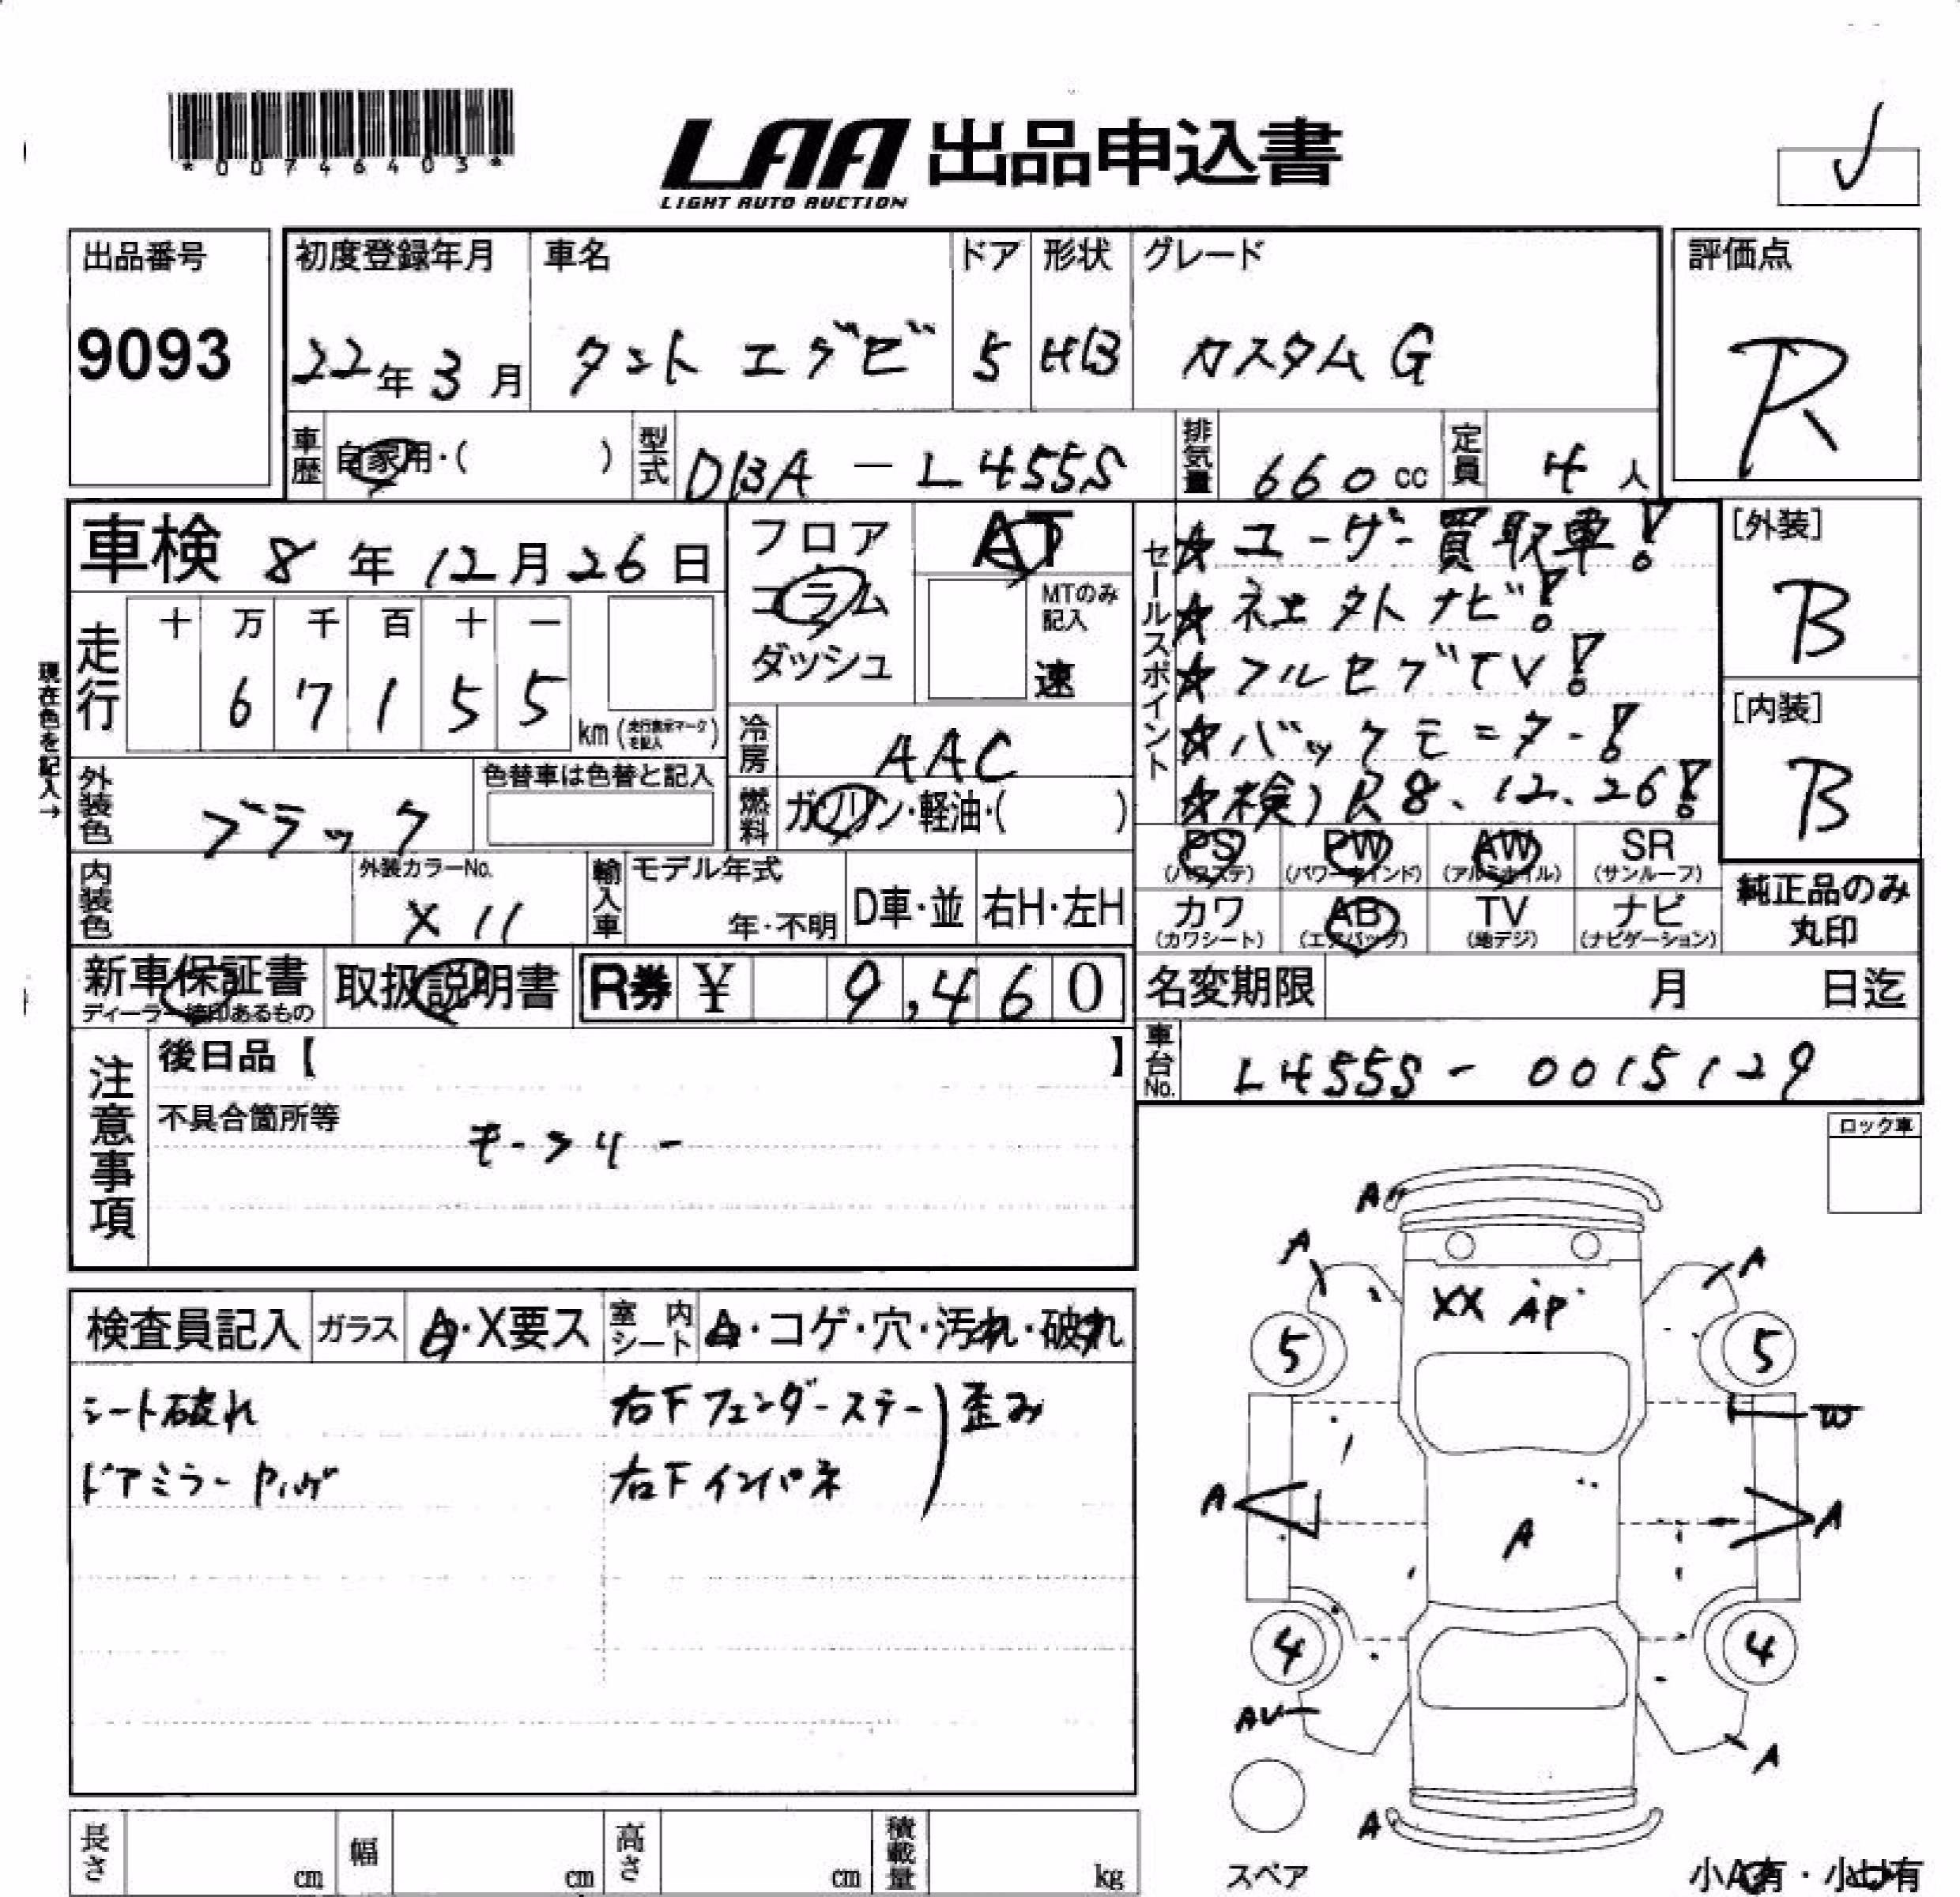 *00746403*
LAA 出品申込書
LIGHT AUTO AUCTION
出品番号
9093
初度登録年月 車名 ドア 形状 グレード
22年3月 タントエグゼ 5 HB カスタムG
評価点
R
車歴 自家用・( ) 型式 DBA-L455S 排気量 660cc 定員 4人
車検 8年12月26日
フロア
コラム
ダッシュ
AT
MTのみ記入
速
セールスポイント
☆ユーザー買取車!
☆社外ナビ!
☆フルセグTV!
☆バックモニター!
☆検)R8.12.26!
[外装]
B
[内装]
B
現在色を記入→
走行 十 万 千 百 十 一
67155 km(走行表示マークを記入)
冷房 AAC
外装色 ブラック 色替車は色替と記入
燃料 ガソリン・軽油・( )
PS(パワステ) PW(パワーウインド) AW(アルミホイル) SR(サンルーフ)
カワ(カワシート) AB(エアバッグ) TV(地デジ) ナビ(ナビゲーション)
純正品のみ
丸印
内装色 外装カラーNo. X11 輸入車 モデル年式 年・不明 D車・並 右H・左H
新車保証書 取扱説明書 R券 ¥ 9,460
ディーラー捺印あるもの
名変期限 月 日迄
注意事項
後日品【 】
不具合箇所等
キーフリー
車台No. L455S-0015129
ロック車
検査員記入 ガラス A・X要ス 室内シート A・コゲ・穴・汚れ・破れ
シート破れ 右下フェンダーステー)歪み
ドアミラー 右下インパネ
A
A A
XX AP
5 5
W
A A A
4 4
AU
A
A
スペア
長さ cm 幅 cm 高さ cm 積載量 kg
小A有・小U有